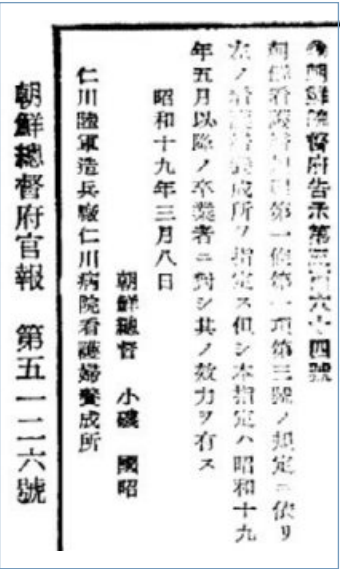 ◎朝鮮總督府告示第三百六十四號
朝鮮看護婦規則第一條第一項第三號ノ規定ニ依リ
左ノ看護婦養成所ヲ指定ス但シ本指定ハ昭和十九
年五月以降ノ卒業者ニ對シ其ノ效力ヲ有ス
昭和十九年三月八日
朝鮮總督 小磯 國昭
仁川陸軍造兵廠仁川病院看護婦養成所
朝鮮總督府官報 第五一二六號